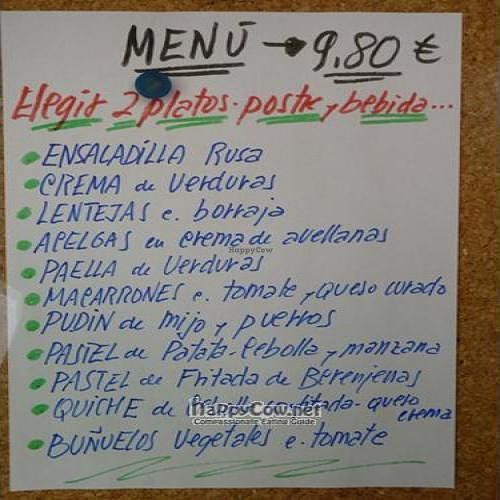 MENÚ → 9.80 €
Elegir 2 platos. postre y bebida...
ENSALADILLA Rusa
CREMA de verduras
LENTEJAS c. borraja
APELGAS en crema de avellanas
HappyCow
PAELLA de verduras
MACARRONES c. tomate y queso curado
PUDIN de mijo y puerros
PASTEL de Patata-Cebolla y manzana
PASTEL de Fritada de Berenjenas
QUICHE de queso
crema
HappyCow.net
Compassionate Eating Guide
BUÑUELOS vegetales c. tomate